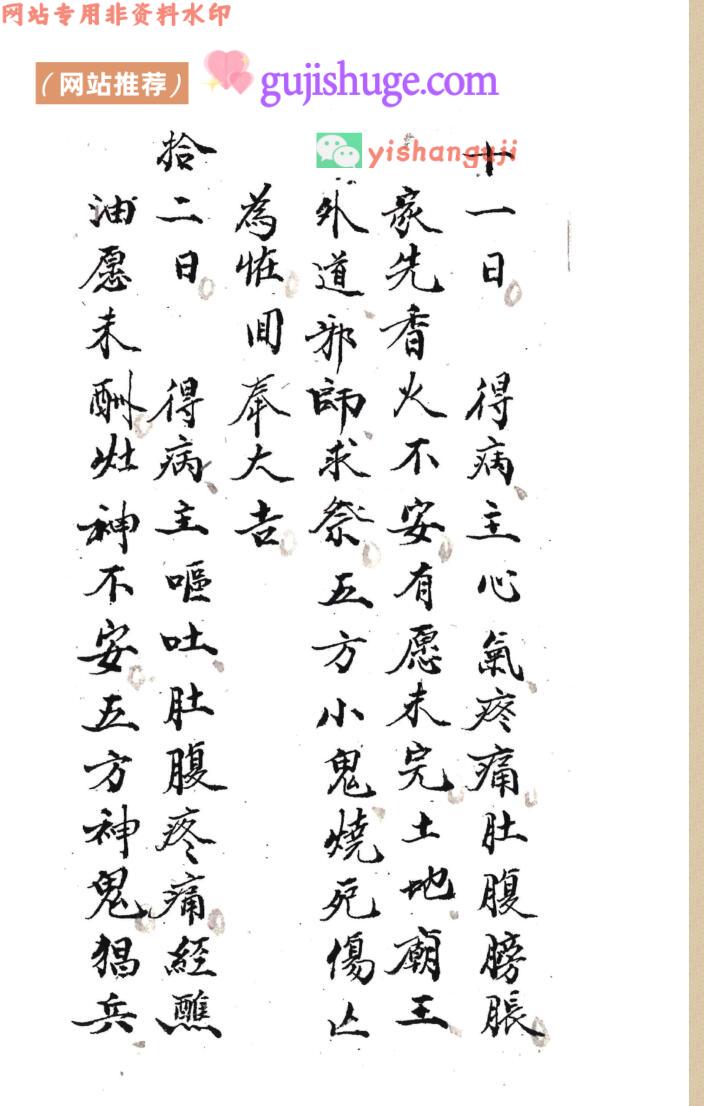 网站专用非资料水印
（网站推荐）
gujishuge.com
yishanguji
十一日 得病主心氣疼痛肚腹膀脹
家先香火不安有愿未完土地廟王
外道邪師求祭五方小鬼燒死傷亡
為怪囬奉大吉
拾二日 得病主嘔吐肚腹疼痛經醮
油愿未酬灶神不安五方神鬼猖兵